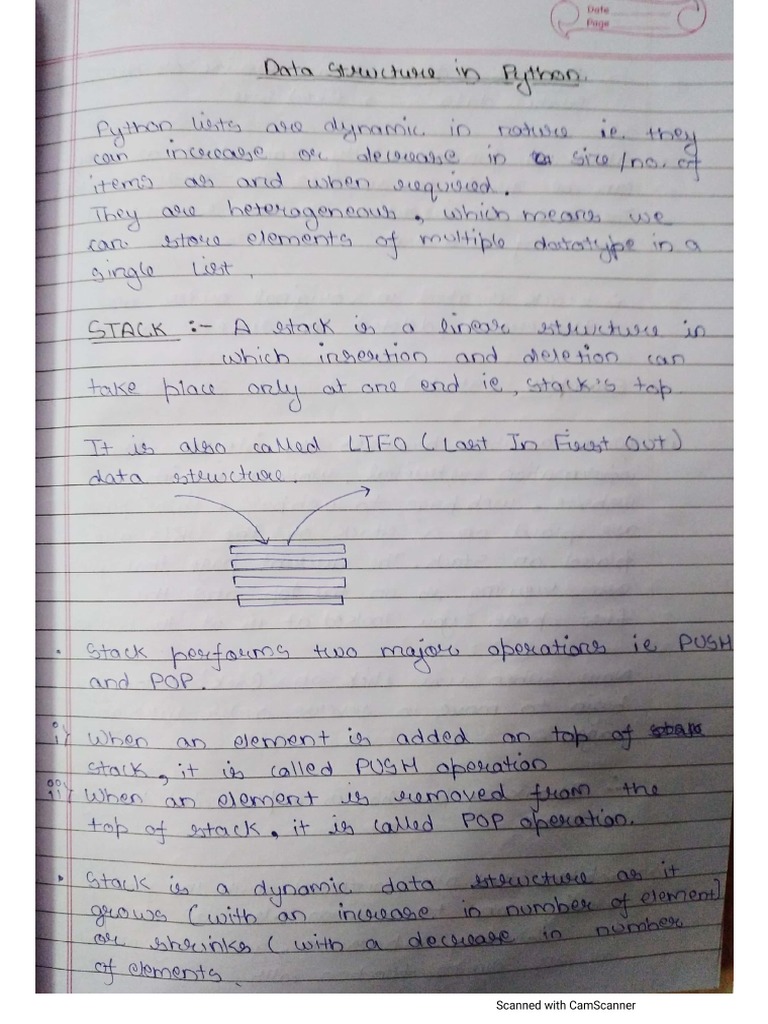 Date
Page
Data Structure in Python.
Python lists are dynamic in nature ie. they
can increase or decrease in size/no. of
items as and when required.
They are heterogeneous, which means we
can store elements of multiple datatype in a
single list.
STACK :- A stack is a linear structure in
which insertion and deletion can
take place only at one end ie, stack's top
It is also called LIFO (Last In First Out)
data structure.
. Stack performs two major operations ie PUSH
and POP.
i) When an element is added on top of
stack, it is called PUSH operation
ii) When an element is removed from the
top of stack, it is called POP operation.
. Stack is a dynamic data structure as it
grows (with an increase in number of element)
or shrinks (with a decrease in number
of elements.
Scanned with CamScanner